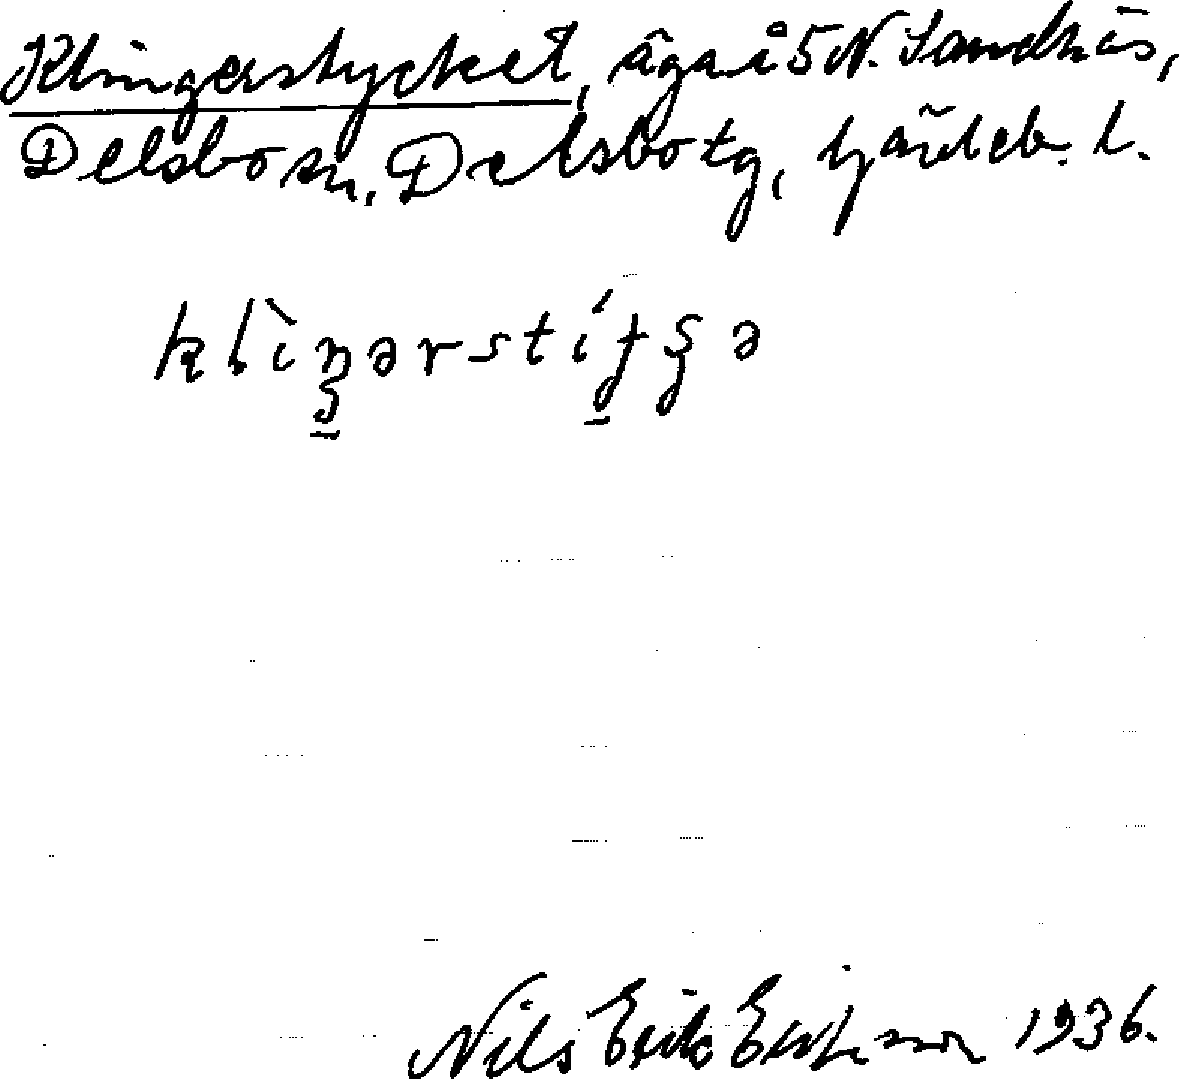 Klingerstycket, äga å 5 N. Sannäs,
Delsbo sn, Delsbo tg, Gävleb. l.
klìŋərstítʂə
Nils Erik Eriksson 1936.